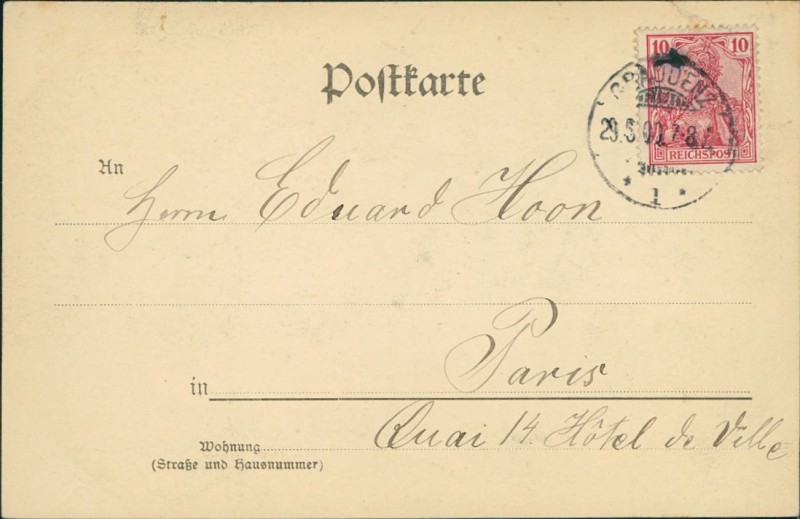 Postkarte
10 10
REICHSPOST
GRAUDENZ
29.5.00. 7-8
* 1 *
An
Herrn Eduard Hoon
in Paris
Quai 14. Hôtel de Ville
Wohnung
(Straße und Hausnummer)